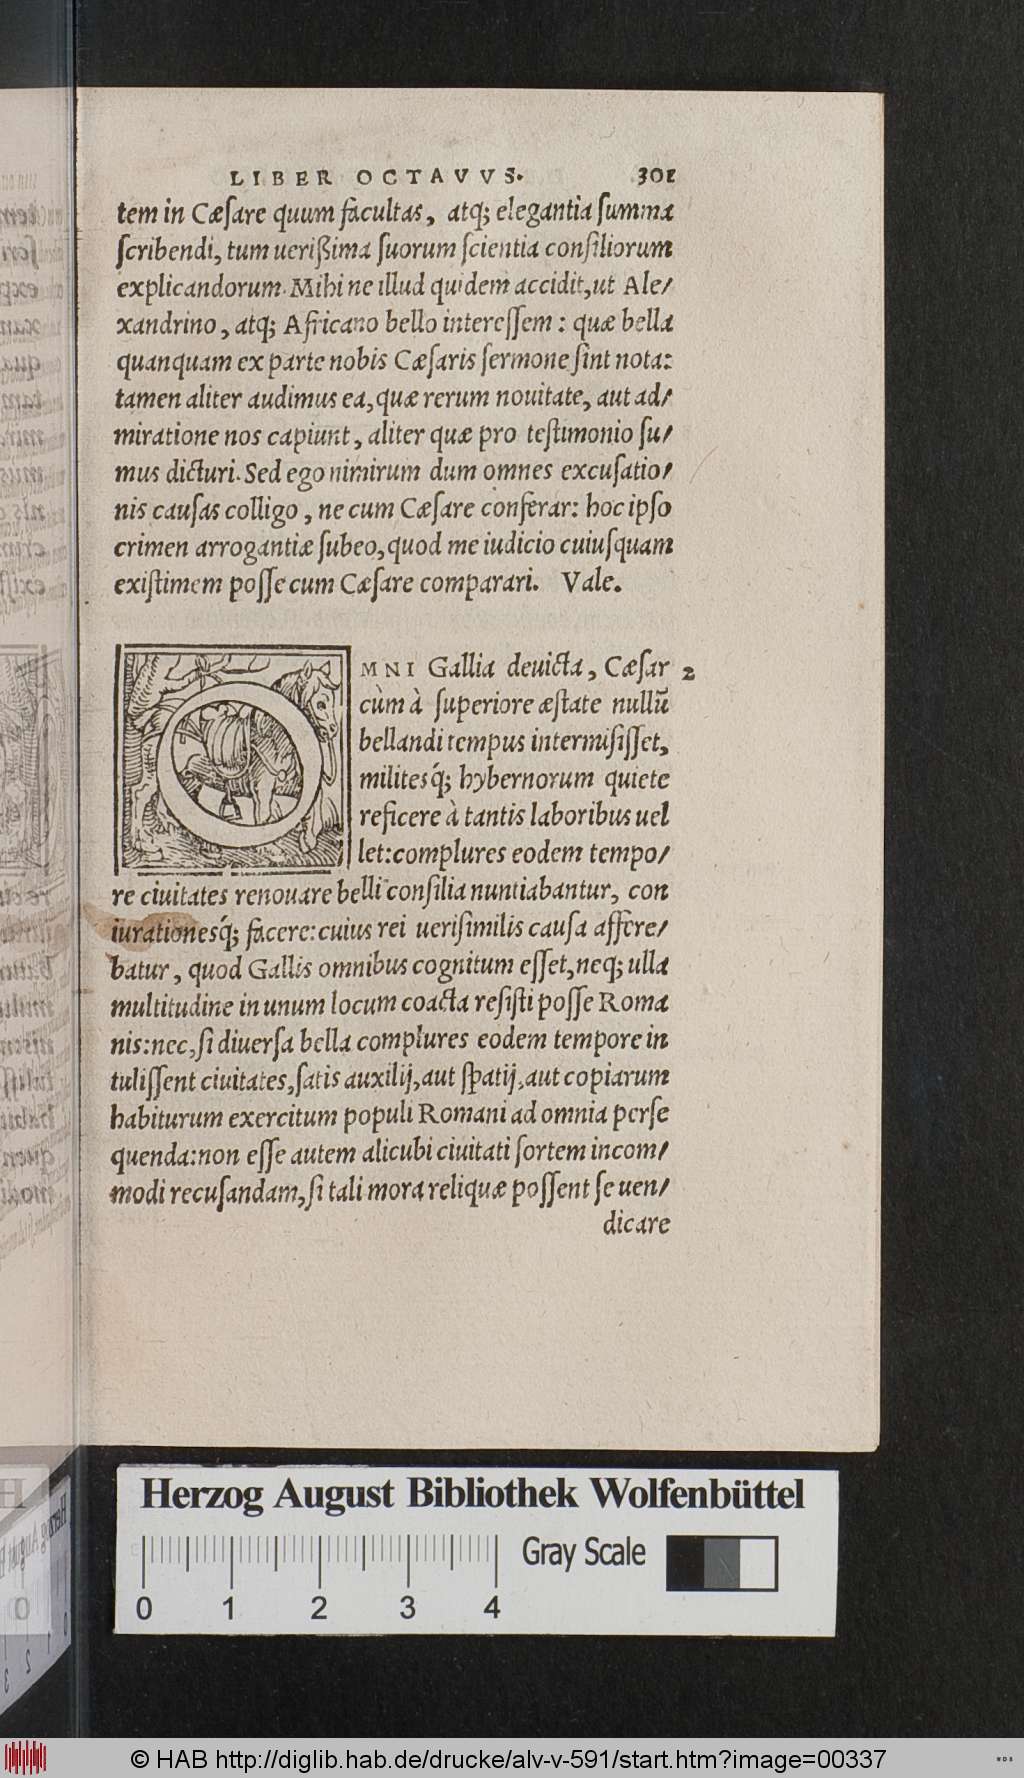 LIBER OCTAVVS. 301
tem in Cæſare quum facultas, atq; elegantia ſumma
ſcribendi, tum ueriſsima ſuorum ſcientia conſiliorum
explicandorum. Mihi ne illud quidem accidit, ut Ale/
xandrino, atq; Africano bello intereſſem: quæ bella
quanquam ex parte nobis Cæſaris ſermone ſint nota:
tamen aliter audimus ea, quæ rerum nouitate, aut ad/
miratione nos capiunt, aliter quæ pro teſtimonio ſu/
mus dicturi. Sed ego nimirum dum omnes excuſatio/
nis cauſas colligo, ne cum Cæſare conferar: hoc ipſo
crimen arrogantiæ ſubeo, quod me iudicio cuiuſquam
exiſtimem poſſe cum Cæſare comparari. Vale.
OMNI Gallia deuicta, Cæſar 2
cùm à ſuperiore æſtate nullũ
bellandi tempus intermiſiſſet,
militesq́; hybernorum quiete
reficere à tantis laboribus uel
let: complures eodem tempo/
re ciuitates renouare belli conſilia nuntiabantur, con
iurationesq́; facere: cuius rei ueriſimilis cauſa affere/
batur, quod Gallis omnibus cognitum eſſet, neq; ulla
multitudine in unum locum coacta reſiſti poſſe Roma
nis: nec, ſi diuerſa bella complures eodem tempore in
tuliſſent ciuitates, ſatis auxilij, aut ſpatij, aut copiarum
habiturum exercitum populi Romani ad omnia perſe
quenda: non eſſe autem alicubi ciuitati ſortem incom/
modi recuſandam, ſi tali mora reliquæ poſſent ſe uen/
dicare
Herzog August Bibliothek Wolfenbüttel
Gray Scale
0 1 2 3 4
© HAB http://diglib.hab.de/drucke/alv-v-591/start.htm?image=00337